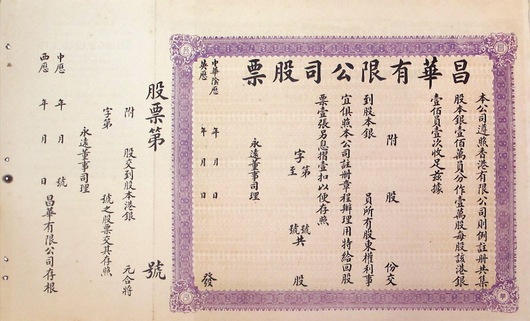 昌華有限公司股票
本公司遵照香港有限公司則例註冊共集
股本銀壹佰萬員分作壹萬股每股該港銀
壹佰員壹次收足茲據
附 股 份交
到股本銀 員所有股東權利事
宜俱照本公司註冊章程辦理用特給回股
票壹張名息摺壹扣以便存照
字 第 號
至 號共 股
永遠董事司理
中華陰歷
英歷 年 月 日 發
股票第 號
附 股交到股本港銀 元合將
字第 號之股票交其存照
永遠董事司理
中歷 年 月 號
西歷 年 月 日 昌華有限公司存根